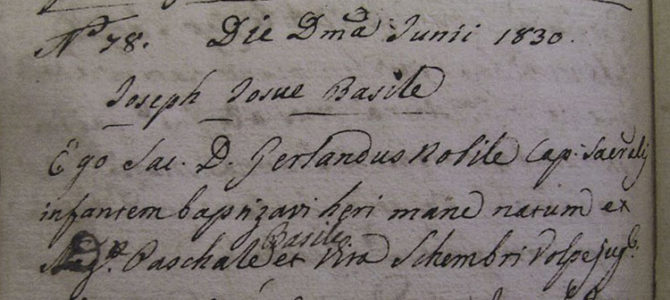 N.º 78. Die Dmã Junii 1830.
Joseph Josue Basile
Ego Sac. D. Gerlandus Nobile Cap. Sacralis
infantem baptizavi heri mane natum ex
Mag.ro Paschale Basile et Vita Schembri Volpe jug.